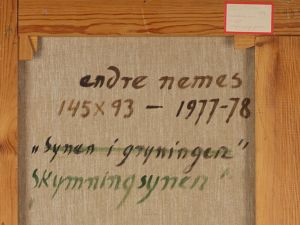 endre nemes
145x93 – 1977-78
„Synen i gryningen"
Skymningsynen"